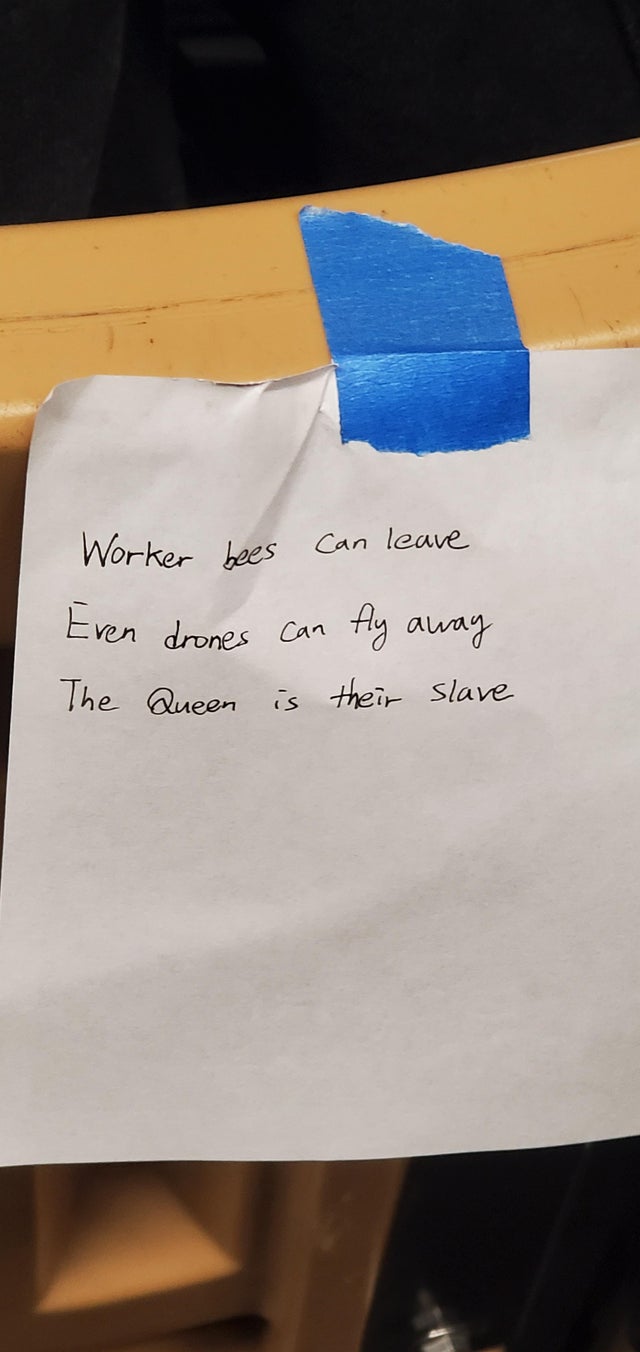 Worker bees can leave
Even drones can fly away
The Queen is their slave